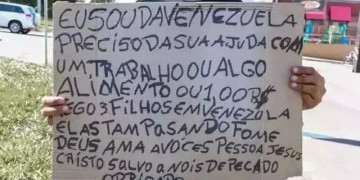 EU SOU DA VENEZUELA
PRECISO DA SUA AJUDA COM
UM TRABALHO OU ALGO
ALIMENTO OU 1,00R$
3 FILHOS EM VENEZUELA
ELAS TAM PASANDO FOME
DEUS AMA A VOCES PESSOA JESUS
CRISTO SALVO A NOIS DE PECADO
OBRIGADO